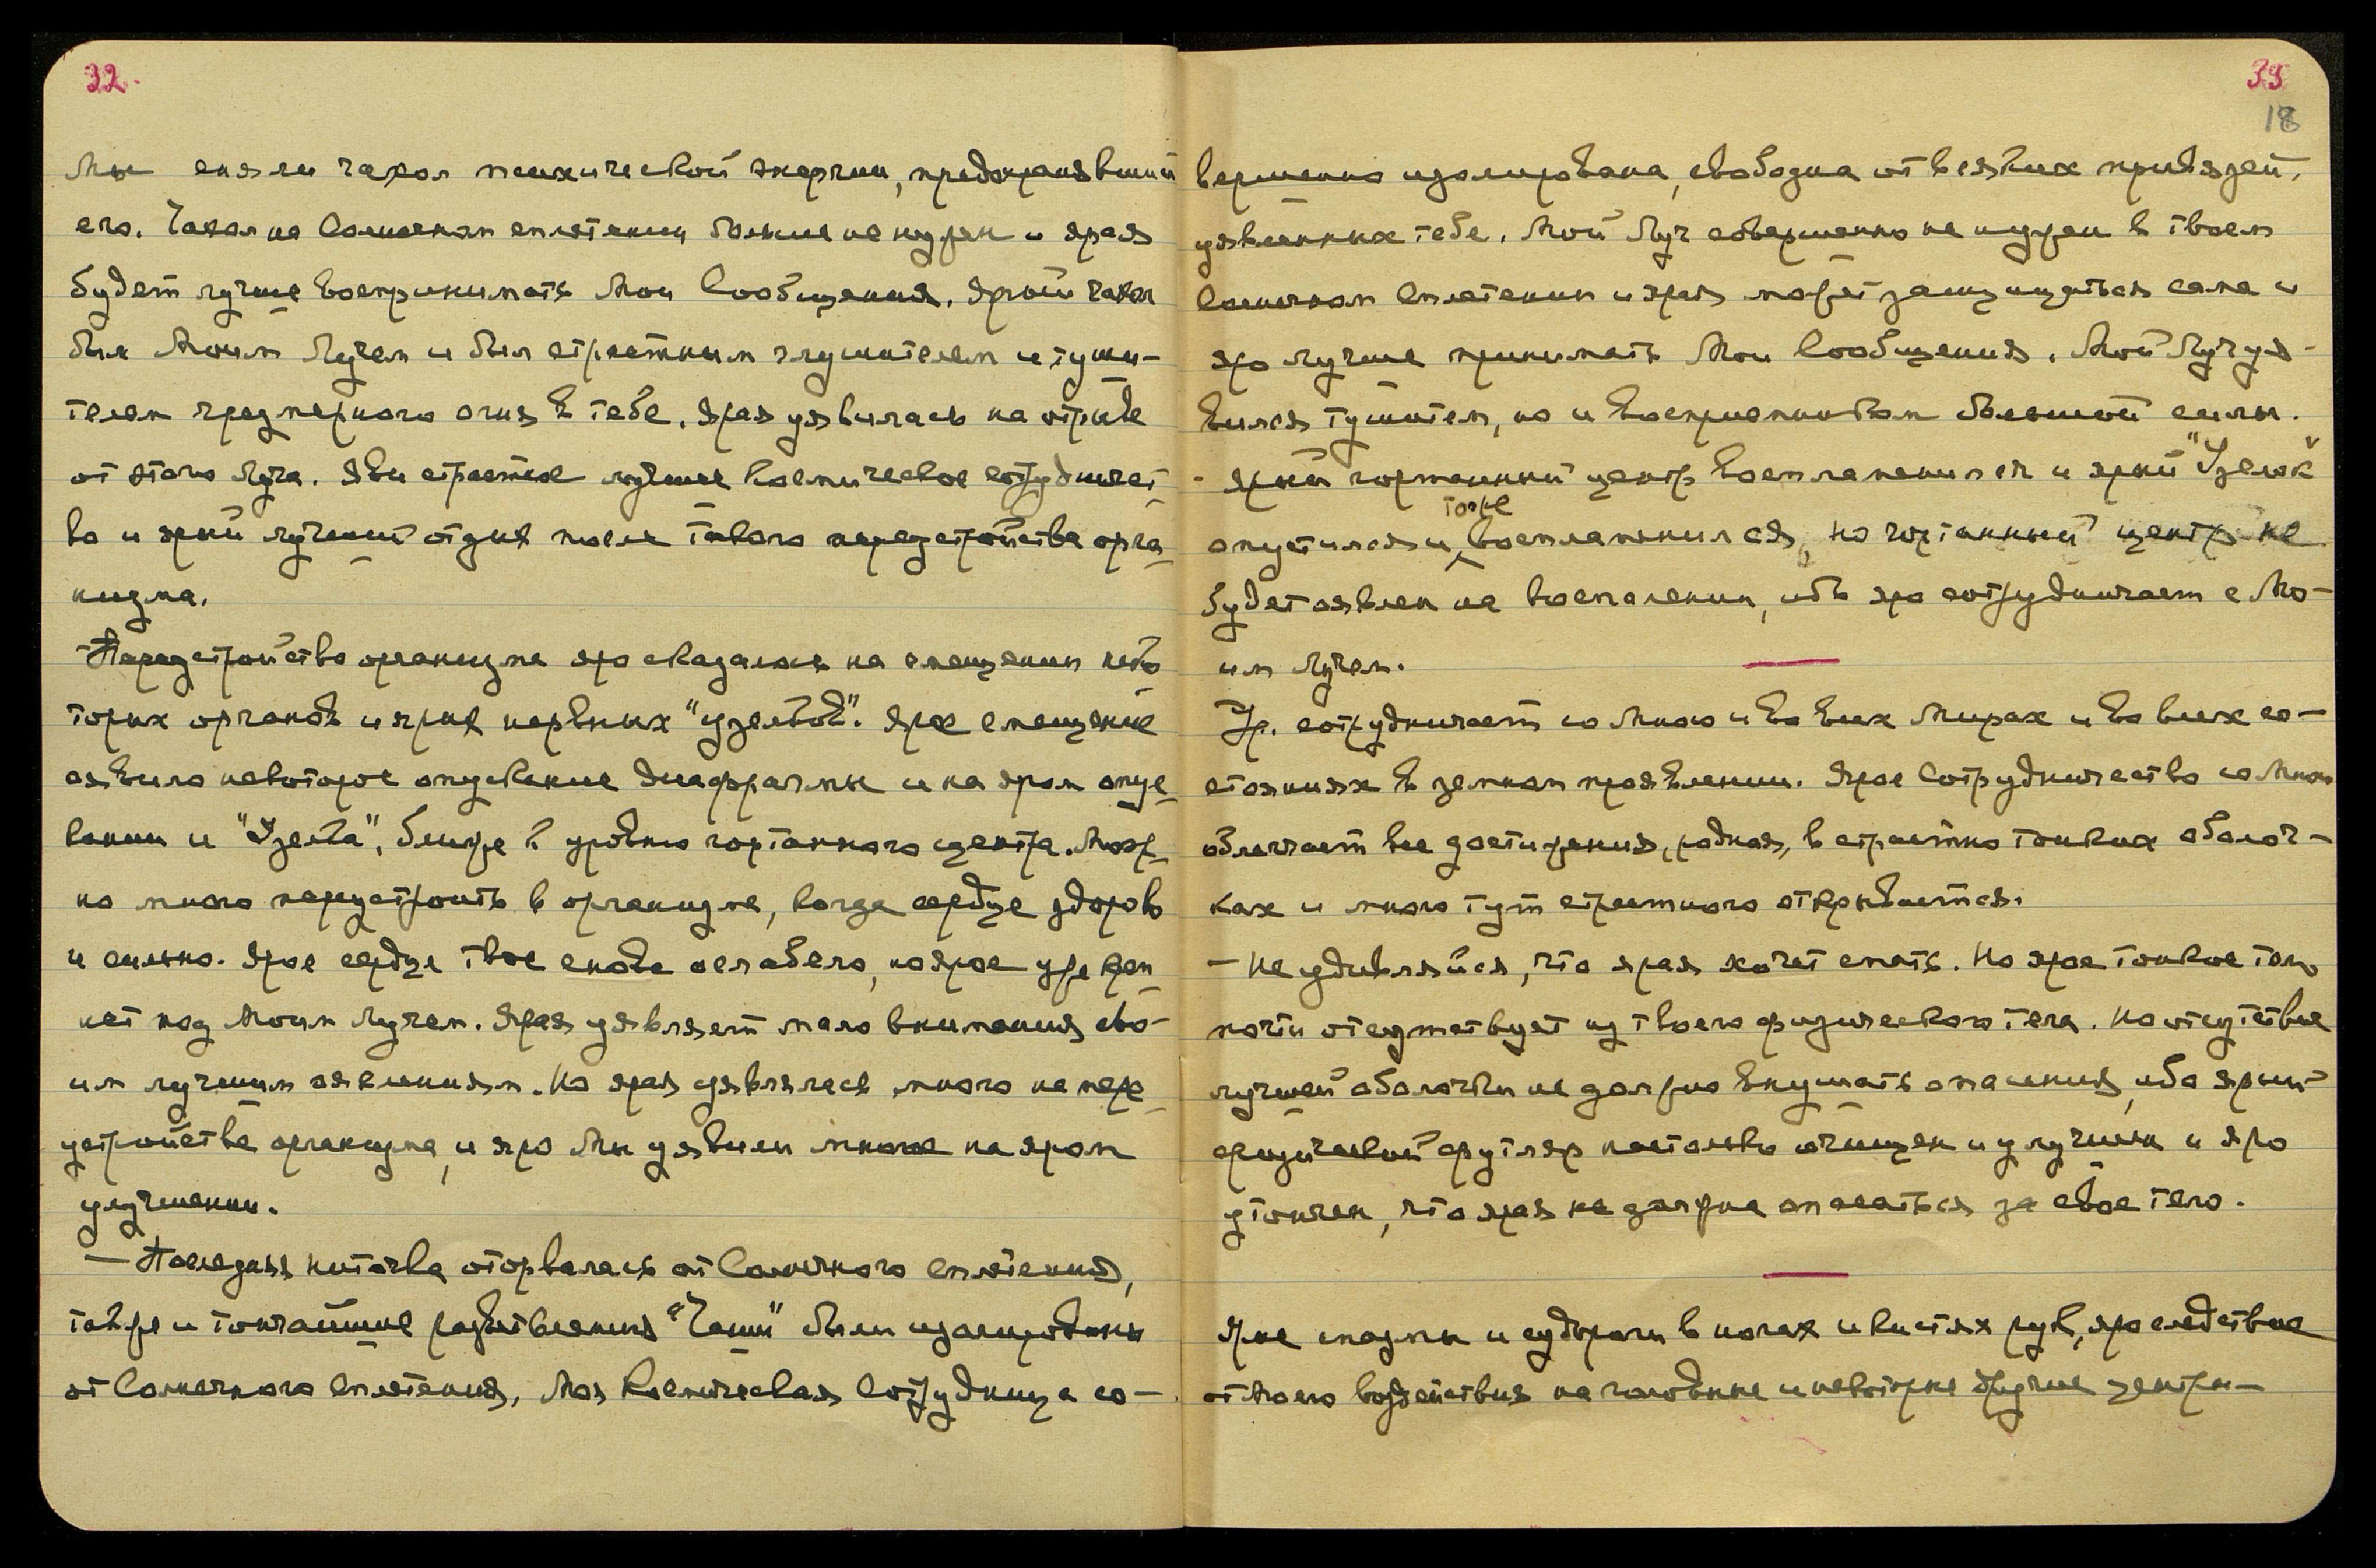 32.
Мы сняли чехол психической энергии, предохранявший
его. Чехол на Солнечном сплетении больше не нужен и ярая
будет лучше воспринимать Мои Сообщения. Ярый чехол
был Моим Лучом и был страстным глушителем и туши-
телем чрезмерного огня в тебе. Ярая уявилась на отрыве
от этого Луча. Яви страстное лучшее космическое сотрудничест-
во и ярый лучший отдых после такого переустройства орга-
низма.
Переустройство организма яро сказалось на смещении неко-
торых органов и ярых нервных "узелков". Ярое смещение
оявило некоторое опускание диафрагмы и на яром опус-
кании и "Узелка", ближе к уровню гортанного центра. Мож-
но много переустроить в организме, когда сердце здорово
и сильно. Ярое сердце твое снова ослабело, но ярое уже креп-
нет под Моим Лучом. Ярая уявляет мало внимания сво-
им лучшим оявлениям. Но ярая уявлялась много на пере-
устройстве организма, и яро Мы уявили многое на яром
улучшении.
— Последняя ниточка оторвалась от Солнечного сплетения,
также и тончайшие разветвления "Чаши" были изолированы
от Солнечного сплетения. Моя Космическая Сотрудница со-
33
18
вершенно изолирована, свободна от всяких привязей,
уявленных тебе. Мой Луч совершенно не нужен в твоем
Солнечном Сплетении и ярая может защищаться сама и
яро лучше принимать Мои Сообщения. Мой Луч уя-
вился тушителем, но и восприемником большой силы.
- Ярый гортанный центр воспламенился и ярый "Узелок"
опустился и тоже воспламенился, но гортанный центр не
будет оявлен на воспалении, ибо яро сотрудничает с Мо-
им Лучом.
Ур. сотрудничает со Мною и во всех Мирах и во всех со-
стояниях в земном проявлении. Ярое Сотрудничество со Мною
облегчает все достижения, родная, в страстно тонких оболоч-
ках и много тут страстного открывается.
— Не удивляйся, что ярая хочет спать. Но ярое тонкое тело
почти отсутствует из твоего физического тела. Но отсутствие
лучшей оболочки не должно внушать опасения, ибо ярый
физический футляр настолько очищен и улучшен и яро
утончен, что ярая не должна опасаться за свое тело.
Ярые спазмы и судороги в ногах и кистях рук, яро следствие
от Моего воздействия на головные и некоторые другие центры—